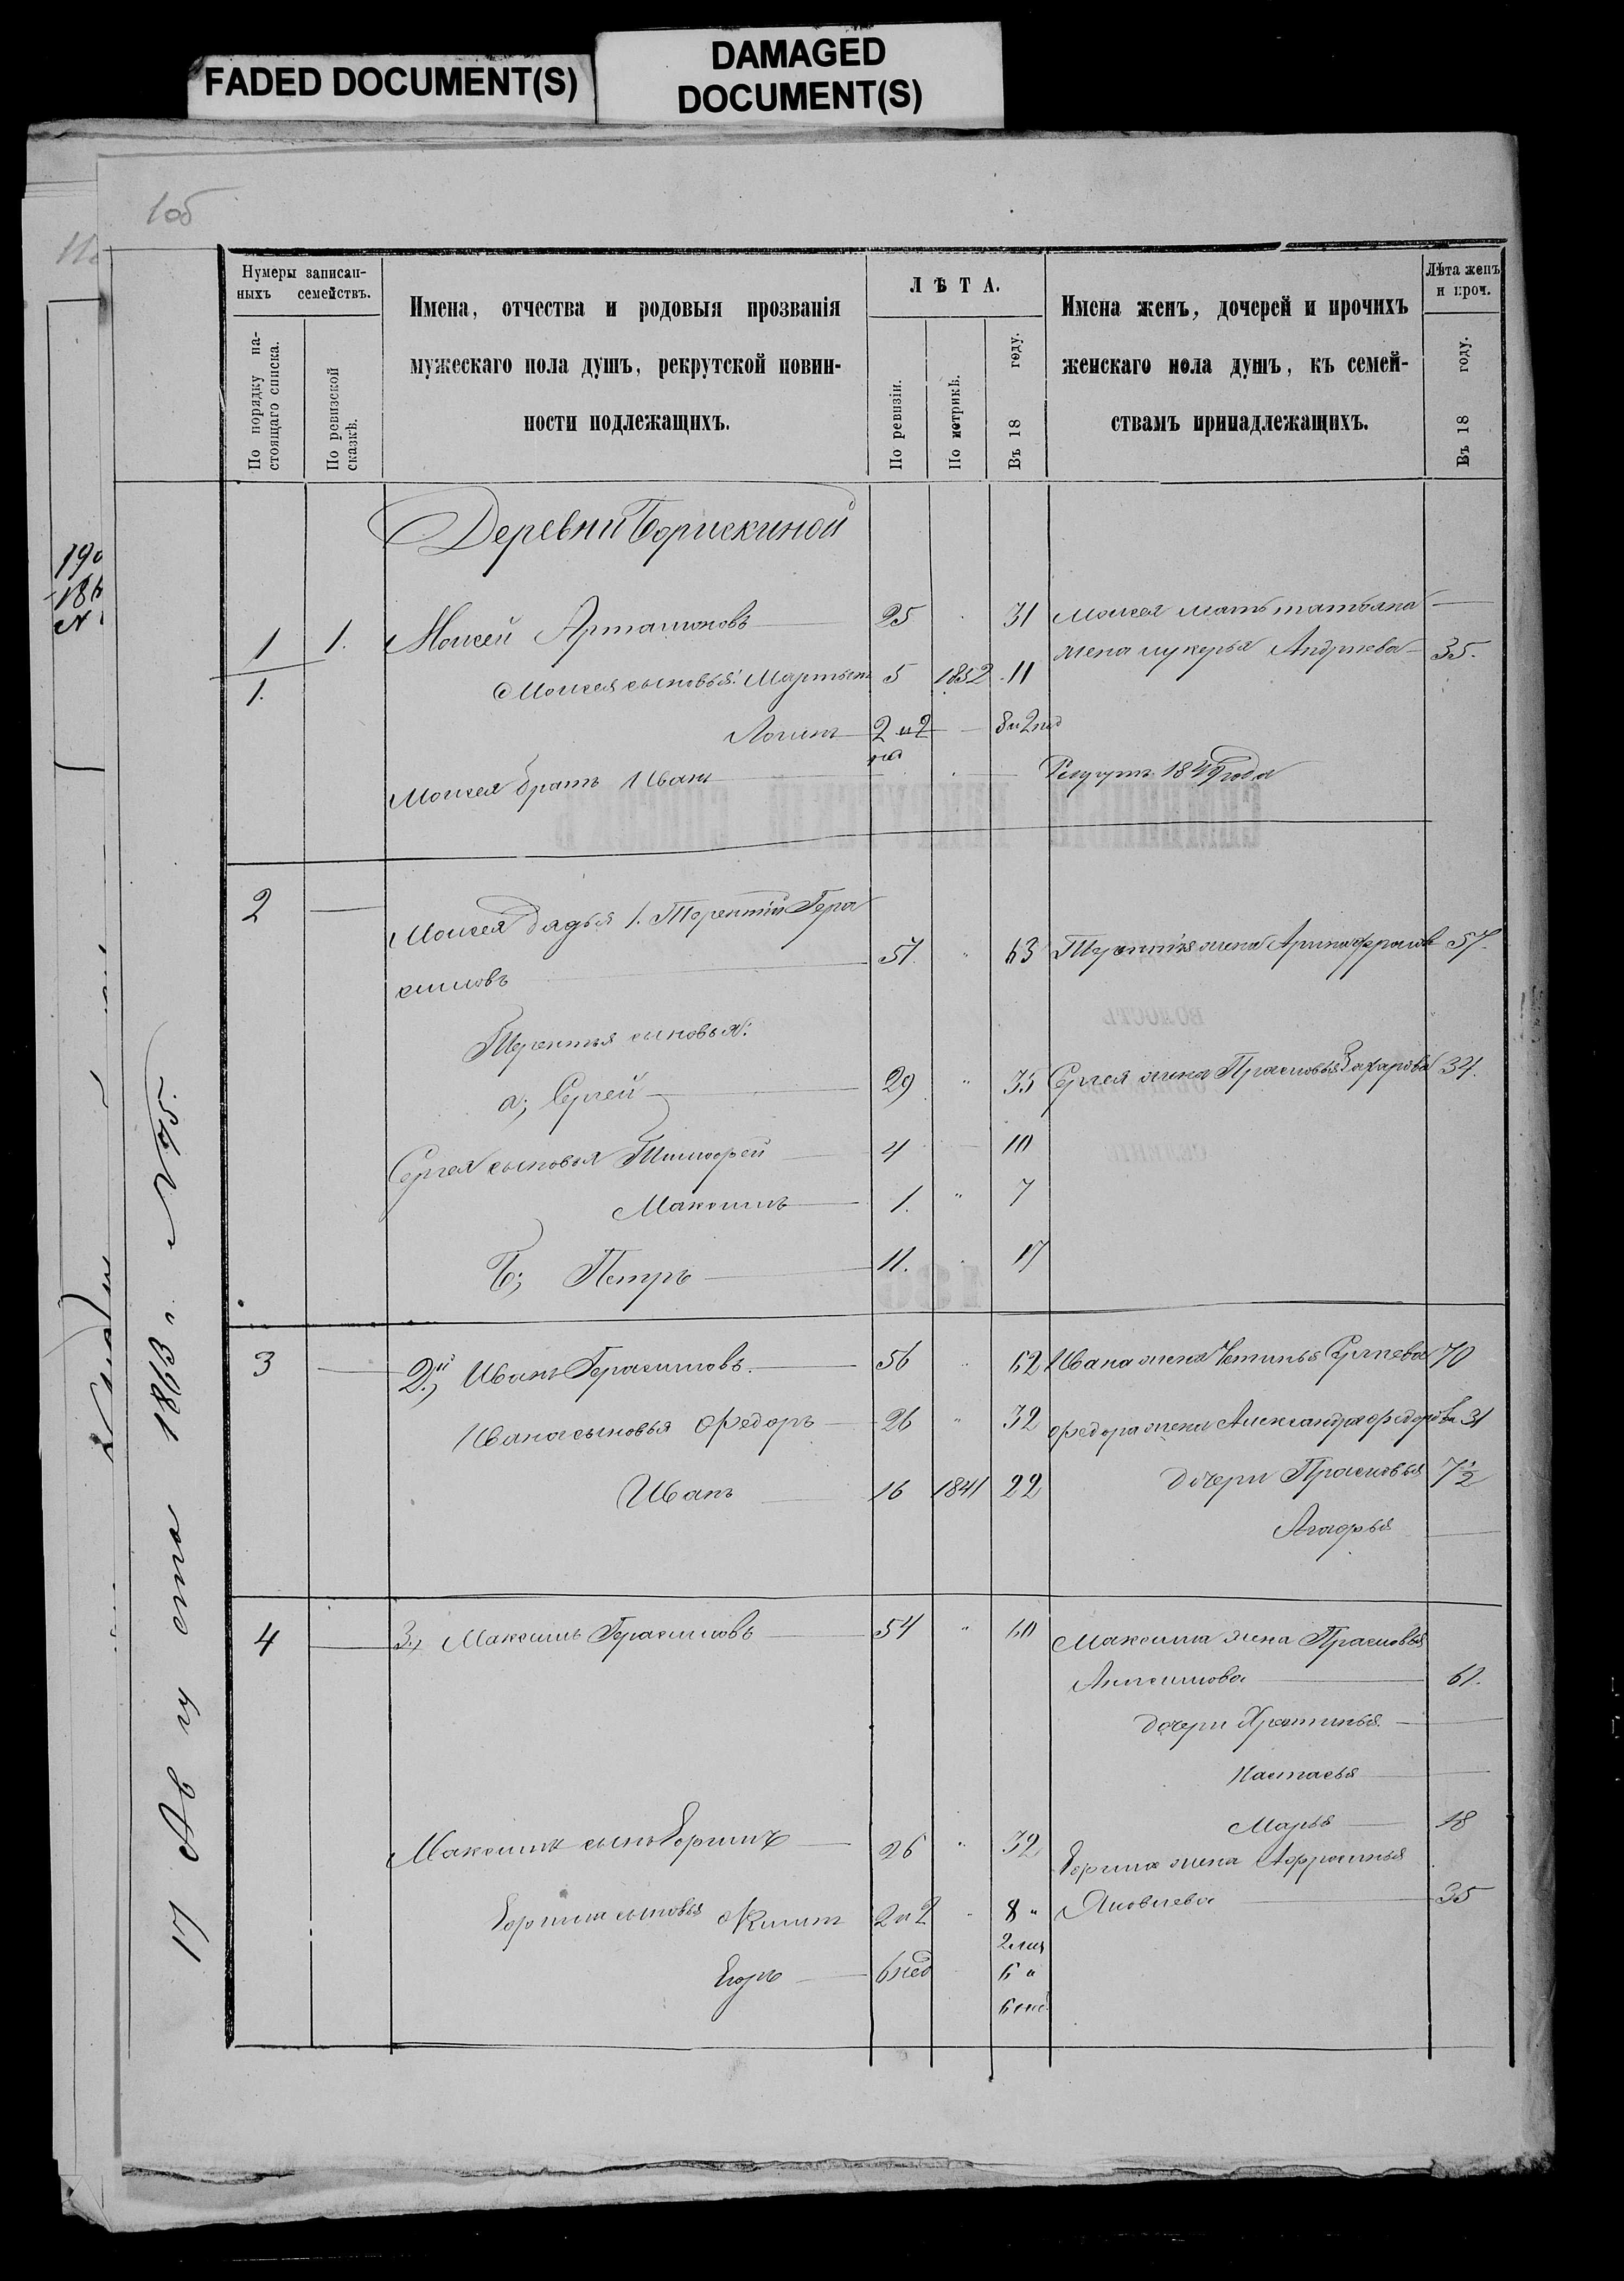 FADED DOCUMENT(S)
DAMAGED
DOCUMENT(S)
1об
Нумеры записан-
ныхъ семействъ.
По порядку на-
стоящаго списка.
По ревизской
сказкѣ.
Имена, отчества и родовыя прозванія
мужескаго пола душъ, рекрутской повин-
ности подлежащихъ.
ЛѢТА.
По ревизіи.
По метрикѣ.
Въ 18 году.
Имена женъ, дочерей и прочихъ
женскаго пола душъ, къ семей-
ствамъ принадлежащихъ.
Лѣта женъ
и проч.
Въ 18 году.
Деревни Борискиной
1 1. Моисей Артамоновъ 25 31 Моисея мать татьяна
жена лукерья Андреева 35.
1. Моисея сыновья: Мартынъ 5 1852 11
Логинъ 2 и 2 8 и 2 нед
на
Моисея братъ Иванъ Рекрутъ 1849 года
2 Моисея дядья 1. Терентій Гера
симовъ 57. " 63 Терентія жена Арина 57.
Терентья сыновья:
а; Сергей 29 " 35 Сергея жена Прасковья Захарова 34.
Сергея сыновья Тимофей 4 10
Максимъ 1. " 7
Б; Петръ 11. 17
3 2й, Иванъ Герасимовъ. 56 " 62 Ивана жена Устинья Сергеева 70
Ивана сыновья Федоръ 26 " 32 Федора жена Александра федорова 31
Иванъ 16 1841 22 дочери Прасковья 7½
Агафья
4 3, Максимъ Герасимовъ 54 " 60 Максима жена Прасковья
Анисимова 61.
дочери Хрестинья
Настасья
Марья 18
Максима сынъ Ефимъ 26 " 32
Ефима жена Афросинья
Яковлева 35
Ефима сыновья 2 и 2 8 "
2 мец
Егоръ 6 нед 6 и
6 нед
17 Августа 1863 г. N 75.